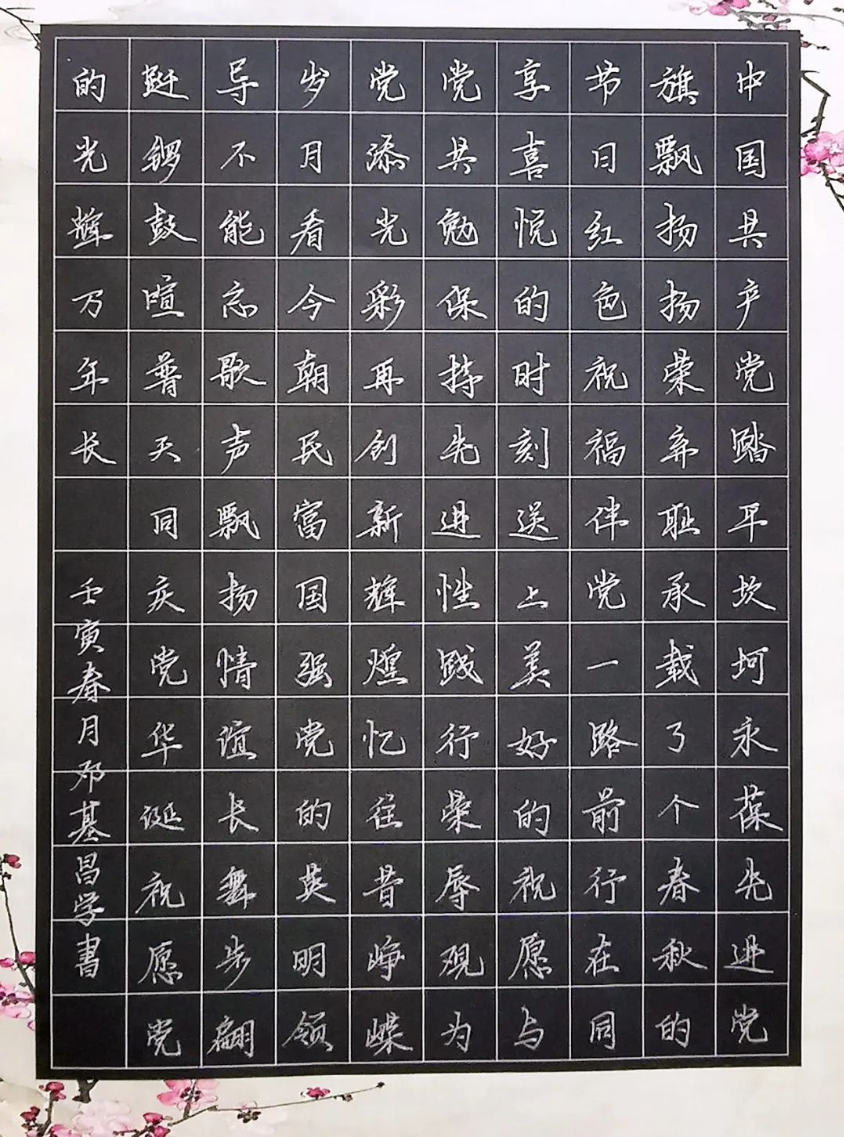 中国共产党踏平坎坷永葆先进党
旗飘扬扬荣弃耻承载了个春秋的
节日红色祝福伴党一路前行在同
享喜悦的时刻送上美好的祝愿与
党共勉保持先进性践行荣辱观为
党添光彩再创新辉煌忆往昔峥嵘
岁月看今朝民富国强党的英明领
导不能忘歌声飘扬情谊长舞步翩
跹锣鼓喧普天同庆党华诞祝愿党
的光辉万年长
壬寅春月邓基昌学书